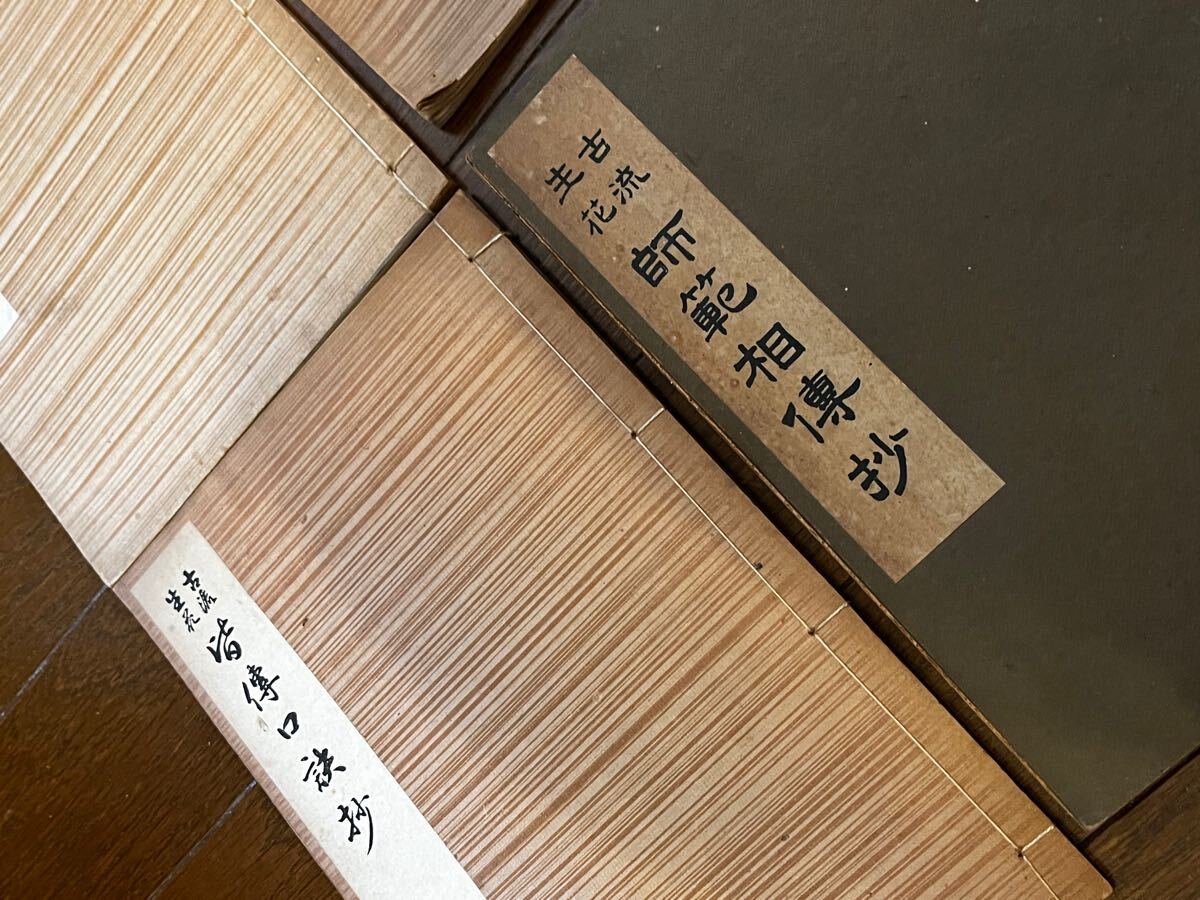 古流
生花
師範相傳抄
古流
生花
皆傳口訣抄